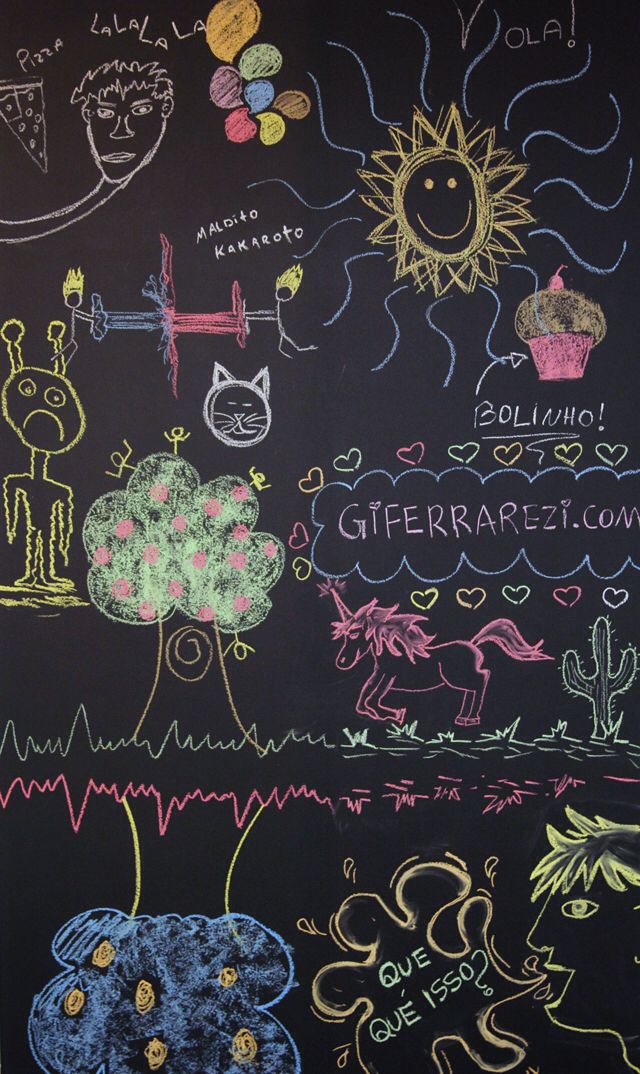 PIZZA
LALALALA
OLA!
MALDITO
KAKAROTO
BOLINHO!
GIFERRAREZI.COM
QUE
QUÉ ISSO?